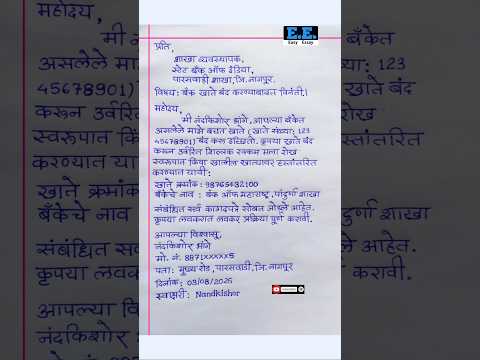 महोदय,
मी नं
बँकेत
असलेले
या: 123
45678901)
ते बंद
करून उर्वरित
रोख
स्वरूपात किं
स्तांतरित
करण्यात या
खाते क्रमांक
बँकेचे नाव
दुर्णा शाखा
संबंधित सर्व
आहेत.
कृपया लवक
करावी.
आपल्या विश्
नंदकिशोर भ
E.E.
Easy Essay
प्रति,
शाखा व्यवस्थापक,
स्टेट बँक ऑफ इंडिया,
पारसवाडी शाखा, जि.नागपूर.
विषय: बँक खाते बंद करण्याबाबत विनंती.।
महोदय,
मी नंदकिशोर भंगे, आपल्या बँकेत
असलेले माझे बचत खाते (खाते संख्या: 123
45678901) बंद करू इच्छितो. कृपया खाते बंद
करून उर्वरित शिल्लक रक्कम मला रोख
स्वरूपात किंवा खालील खात्यावर हस्तांतरित
करण्यात यावी:
खाते क्रमांक: 98765432100
बँकेचे नाव : बँक ऑफ महाराष्ट्र, पांदुर्णा शाखा
संबंधित सर्व कागदपत्रे सोबत जोडले आहेत.
कृपया लवकरात लवकर प्रक्रिया पूर्ण करावी.
आपल्या विश्वासू,
नंदकिशोर भंगे
मो. नं: 8871XXXXX5
पता: मुख्य रोड, पारसवाडी, जि.नागपूर
दिनांक: 03/08/2025
स्वाक्षरी: NandKishor